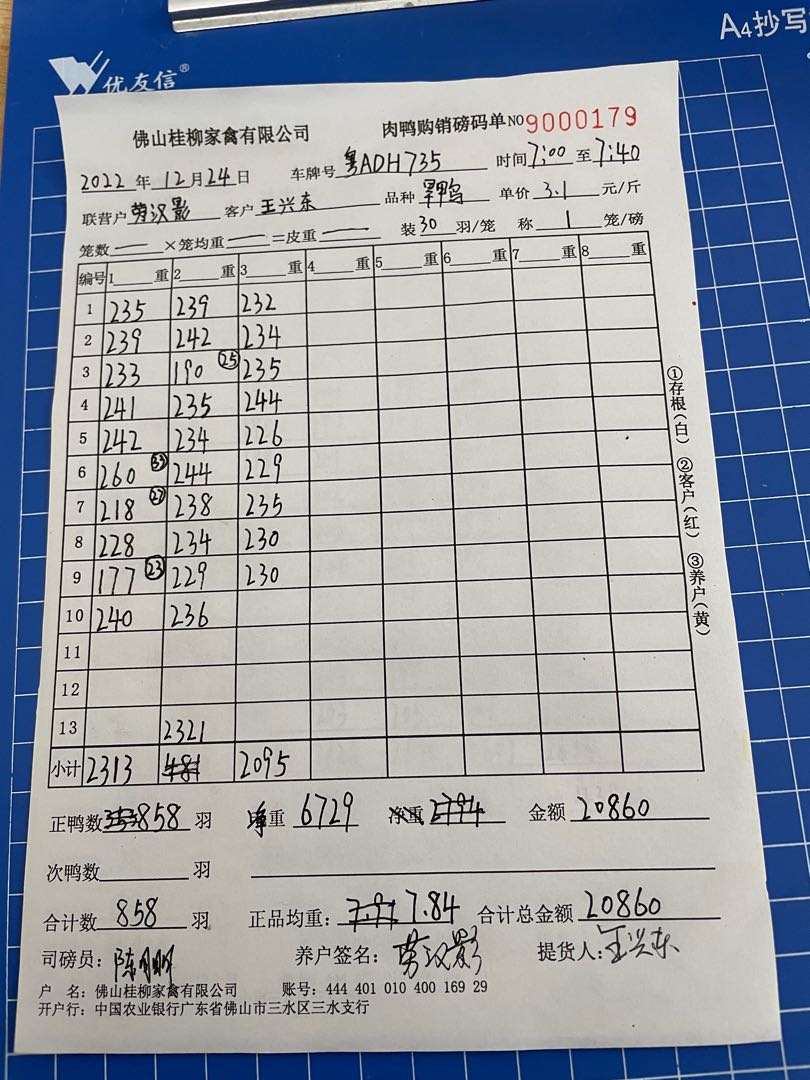 A4抄写
优友信®
佛山桂柳家禽有限公司 肉鸭购销磅码单 NO 9000179
2022 年 12 月 24 日 车牌号 粤ADH735 时间 7:00 至 7:40
联营户 劳汉影 客户 王兴东 品种 单价 3.1 元/斤
笼数 — ×笼均重 — =皮重 — 装 30 羽/笼 称 1 笼/磅
编号 1 重 2 重 3 重 4 重 5 重 6 重 7 重 8 重
1 235 239 232
2 239 242 234
3 233 190 (25) 235
4 241 235 244
5 242 234 226
6 260 (33) 244 229
7 218 (27) 238 235
8 228 234 230
9 177 (23) 229 230
10 240 236
11
12
13 2321
小计 2313 481 2095
正鸭数 858 羽 净重 6729 净重 2794 金额 20860
次鸭数 羽
合计数 858 羽 正品均重: 7.84 合计总金额 20860
司磅员: 陈 养户签名: 劳汉影 提货人: 王兴东
户 名: 佛山桂柳家禽有限公司 账号: 444 401 010 400 169 29
开户行: 中国农业银行广东省佛山市三水区三水支行
①存根(白) ②客户(红) ③养户(黄)